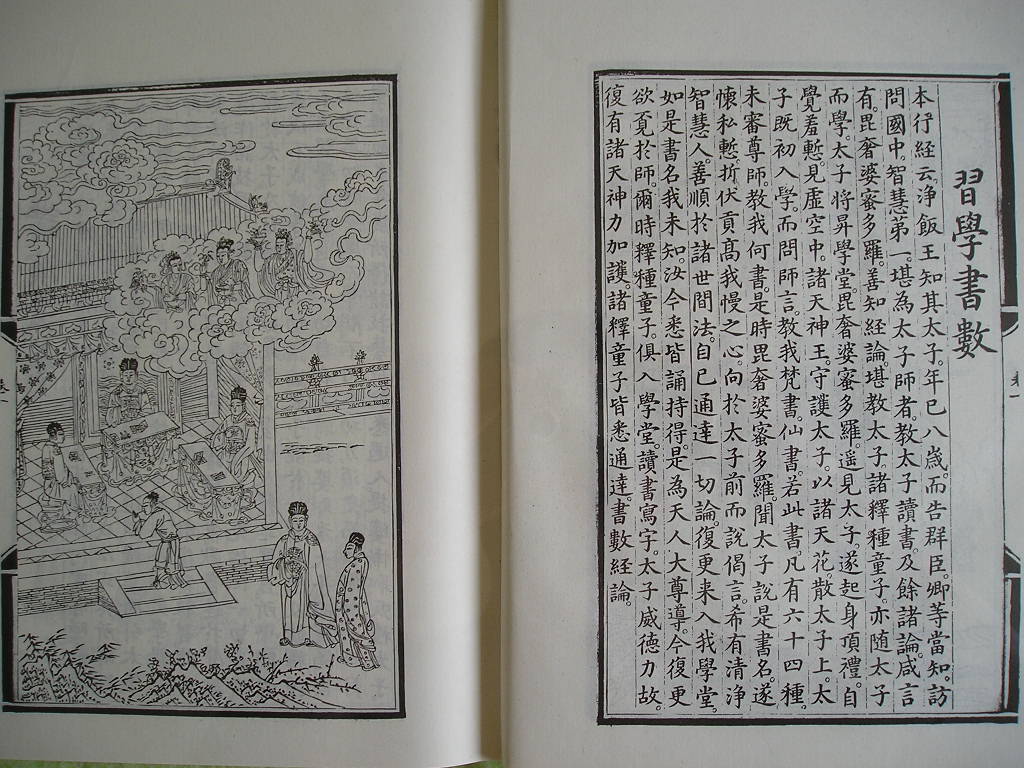 習學書數
本行經云淨飯王知其太子。年已八歲。而告群臣。卿等當知。訪
問國中。智慧第一。堪為太子師者。教太子讀書。及餘諸論。咸言
有。毘奢婆蜜多羅善知經論。堪教太子。諸釋種童子。亦隨太子
而學。太子將昇學堂。毘奢婆蜜多羅。遥見太子。遂起身頂禮。自
覺羞慙。見虛空中。諸天神王。守護太子。以諸天花。散太子上。太
子既初入學。而問師言。教我梵書。仙書。若此書。凡有六十四種。
未審尊師。教我何書。是時毘奢婆蜜多羅。聞太子說是書名。遂
懷私慙折伏貢高我慢之心。向於太子前而說偈言。希有清淨
智慧人。善順於諸世間法。自已通達一切論。復更来入我學堂。
如是書名我未知。汝今悉皆誦持得。是為天人大尊導。今復更
欲覓於師。爾時釋種童子。俱入學堂。讀書寫字。太子威德力故。
復有諸天神力加護。諸釋童子皆悉通達。書數經論。
卷一